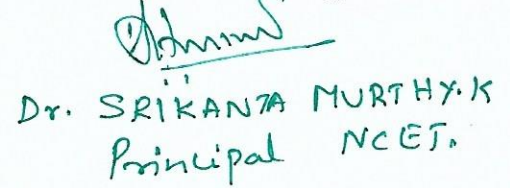 Dr. SRIKANTA MURTHY.K
Principal NCET.